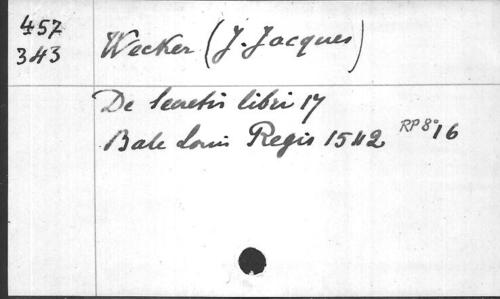 457
343
Wecker (J. Jacques)
De Secretis libri 17
Bale Louis Regis 1542 RP 8° 16